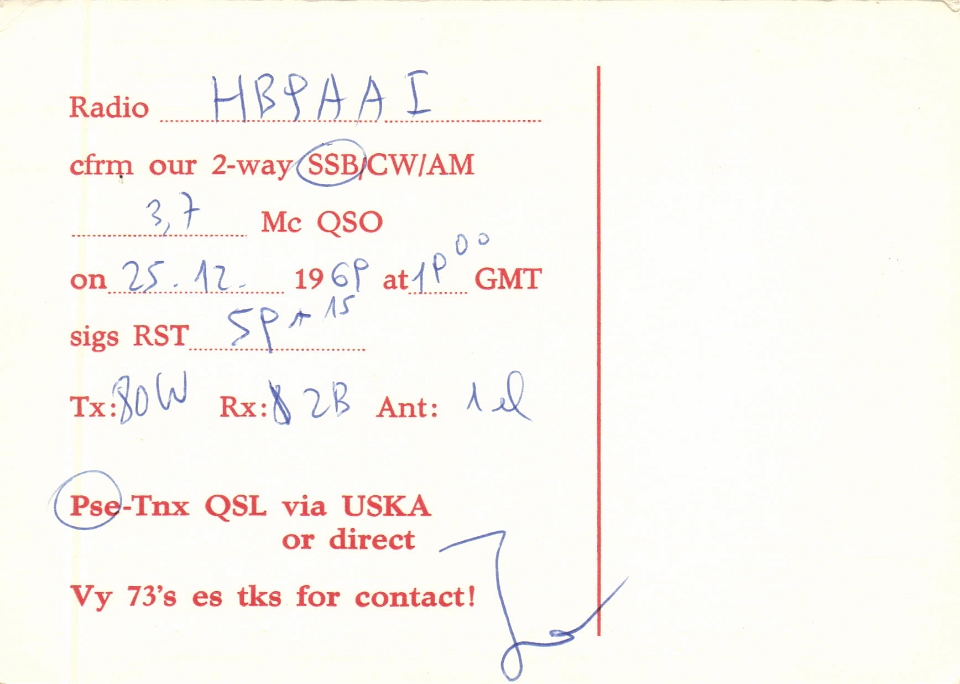 Radio HB9AAI
cfrm our 2-way SSB/CW/AM
3,7 Mc QSO
on 25.12. 1969 at 19⁰⁰ GMT
sigs RST 59 + 15
Tx: 80W Rx: 2B Ant: 1 el
Pse-Tnx QSL via USKA
or direct
Vy 73's es tks for contact!